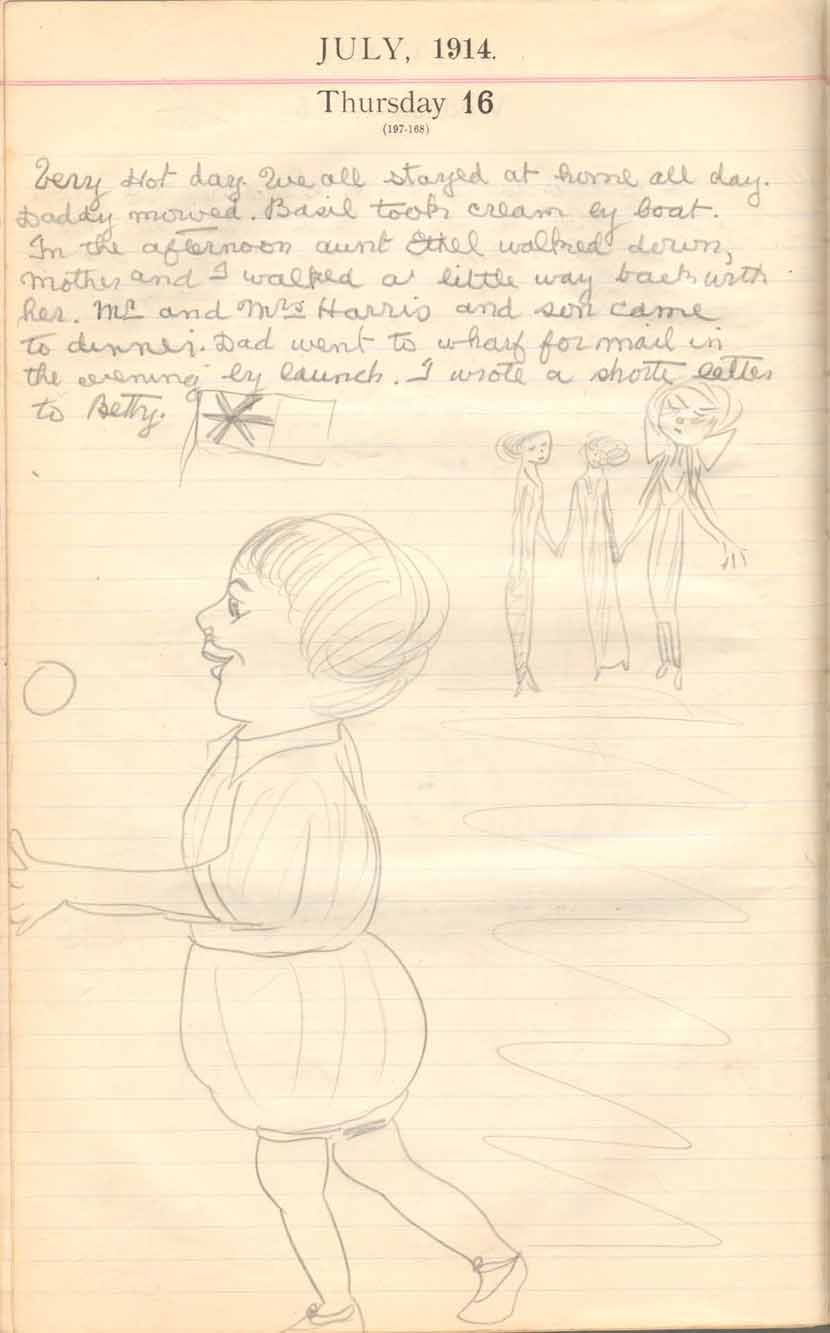 JULY, 1914.
Thursday 16
(197-168)
Very Hot day. We all stayed at home all day.
Daddy mowed. Basil took cream by boat.
In the afternoon aunt Ethel walked down,
Mother and I walked a little way back with
her. Mr and Mrs Harris and son came
to dinner. Dad went to wharf for mail in
the evening by launch. I wrote a short letter
to Betty.